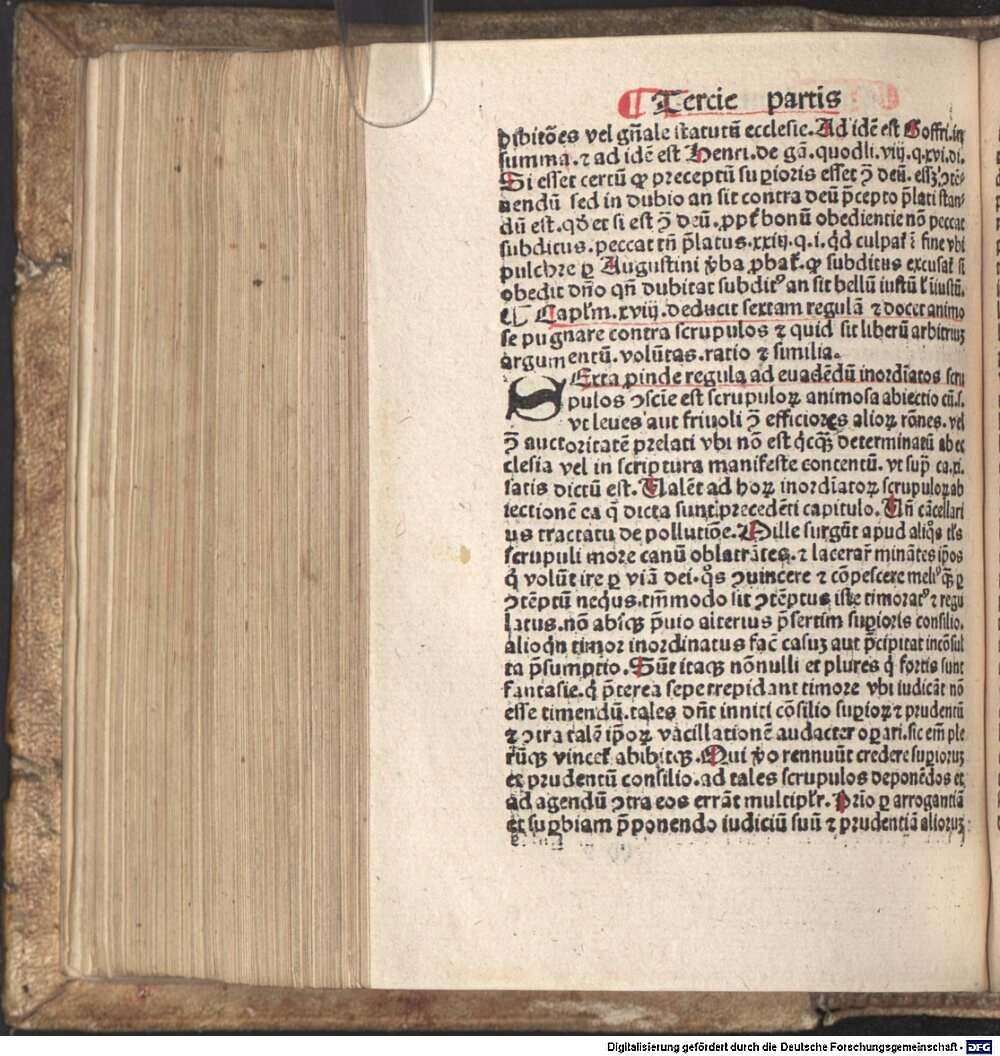 Tercie partis
hibitões vel gñale statutũ ecclesie. Ad idẽ est Goffri. in
summa. ⁊ ad idẽ est Henri. de gã. quodli. viij. q. xvi. di.
Si esset certũ ꝙ preceptũ suꝑioris esset ꝯ̃ deũ. essꝫ ꝯtẽ-
nendũ sed in dubio an sit contra deũ p̃cepto p̃lati stan-
dũ est. qꝺ et si est ꝯ̃ deũ. ꝓpt̃ bonũ obedientie nõ peccat
subditus. peccat tñ p̃latus. xxiij. q. i. qꝺ culpat̃ ĩ fine vbi
pulchre ꝑ Augustini ṽba ꝓbat̃. ꝙ subditus excusat̃ si
obedit dño qñ dubitat subditꝰ an sit bellũ iustũ ł iniustũ.
Capłm. xviij. deducit sextam regulã ⁊ docet animo
se pugnare contra scrupulos ⁊ quid sit liberũ arbitriuꝫ
argumentũ. volũtas. ratio ⁊ similia.
SExta ꝓinde regula ad euadẽdũ inordĩatos scru
pulos ꝯscĩe est scrupuloꝝ animosa abiectio cũ. s.
vt leues aut friuoli ꝯ̃ efficiores alioꝝ rões. vel
ꝯ̃ auctoritatẽ prelati vbi nõ est qͥcꝗꝫ determinatũ ab ec
clesia vel in scriptura manifeste contentũ. vt sup̃ ca. xi.
satis dictũ est. Ualẽt ad hoꝝ inordĩatoꝝ scrupuloꝝ ab
iectionẽ ea q̃ dicta sunt precedẽti capitulo. Uñ cãcellari
us tractatu de pollutiõe. Mille surgũt apud aliqͦs tł̃s
scrupuli more canũ oblatrãtes. ⁊ lacerar̃ minãtes ip̃os
q̇ volũt ire ꝑ viã dei. qͦs ꝯuincere ⁊ cõpescere meliꝰ ꝗ̃ ꝑ
ꝯtẽptũ neqͥus. tm̃modo sit ꝯtẽptus iste timoratꝰ ⁊ regu
latus. nõ absqꝫ p̃uio alterius p̃sertim suꝑioris consilio.
alioqͥn timor inordinatus fac̃ casuꝫ aut p̃cipitat incõsul
ta p̃sumptio. Sũt itaqꝫ nõnulli et plures q̇ fortis sunt
fantasie. q̇ p̃terea sepe trepidant timore vbi iudicãt nõ
esse timendũ. tales dñt inniti cõsilio suꝑioꝝ ⁊ prudentũ
⁊ ꝯtra talẽ ip̃oꝝ vacillationẽ audacter oꝑari. sic em̃ ple
rũqꝫ vincet̃ abibitqꝫ. Qui ṽo rennuũt credere suꝑioruꝫ
et prudentũ consilio. ad tales scrupulos deponẽdos et
ad agendũ ꝯtra eos errãt multipłr. Prĩo ꝑ arrogantiã
et suꝑbiam p̃ponendo iudiciũ suũ ⁊ prudentiã alioruꝫ
Digitalisierung gefördert durch die Deutsche Forschungsgemeinschaft - DFG